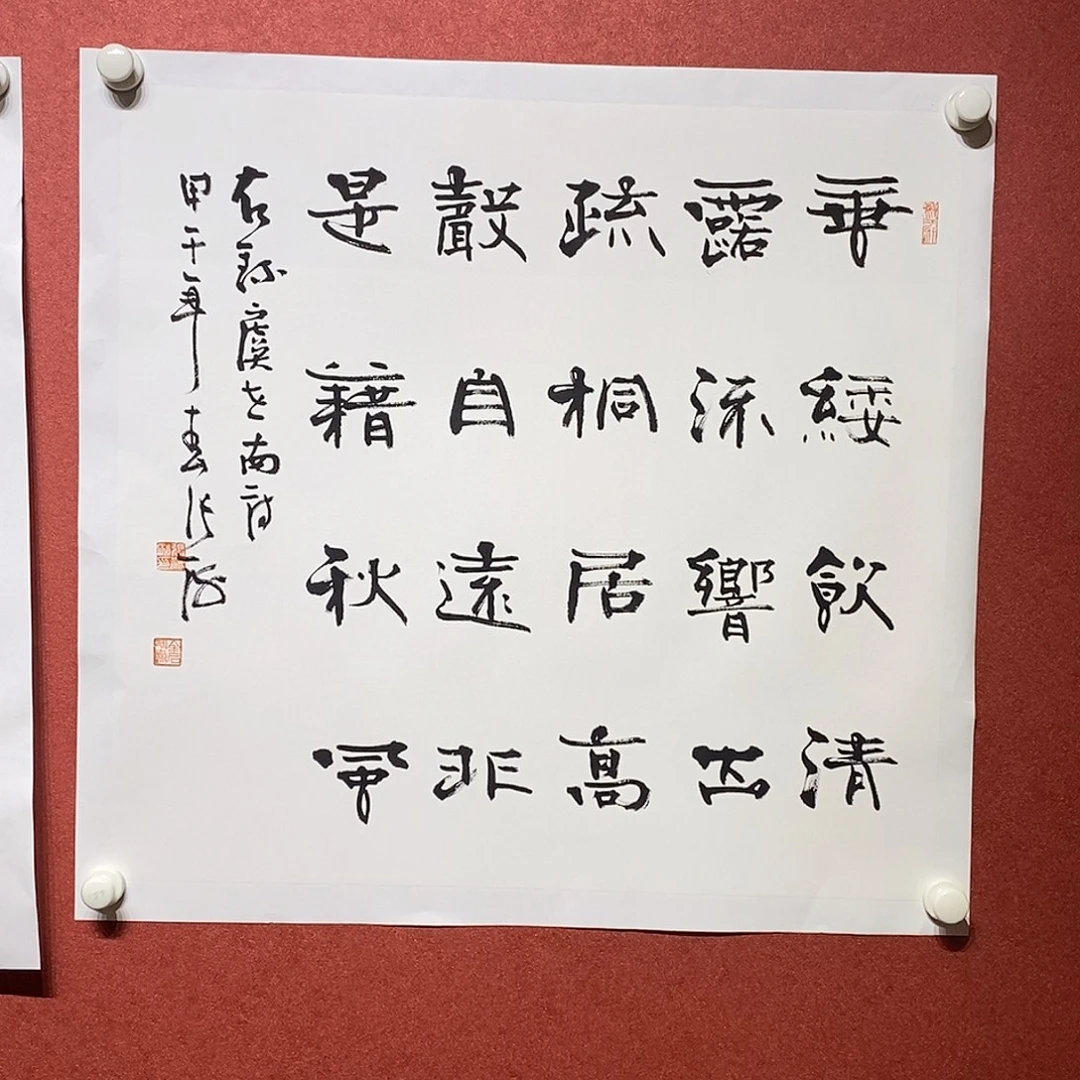 垂緌飲清
露流響出
疏桐居高
聲自遠非
是藉秋風
右錄虞世南詩
甲午年